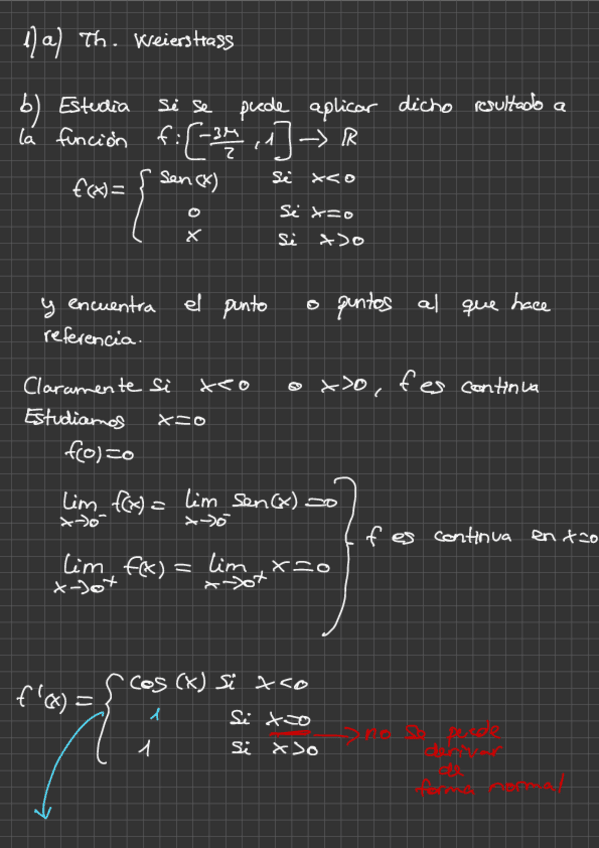 1) a) Th. Weierstrass
b) Estudia si se puede aplicar dicho resultado a
la función f: [-3π/2, 1] → ℝ
f(x) = { sen(x) si x<0
0 si x=0
x si x>0
y encuentra el punto o puntos al que hace
referencia.
Claramente si x<0 o x>0, f es continua
Estudiamos x=0
f(0)=0
lim x→0⁻ f(x) = lim x→0⁻ sen(x) = 0
f es continua en x=0
lim x→0⁺ f(x) = lim x→0⁺ x = 0
f'(x) = { cos(x) si x<0
1 si x=0 → no se puede
derivar
de
forma normal
1 si x>0